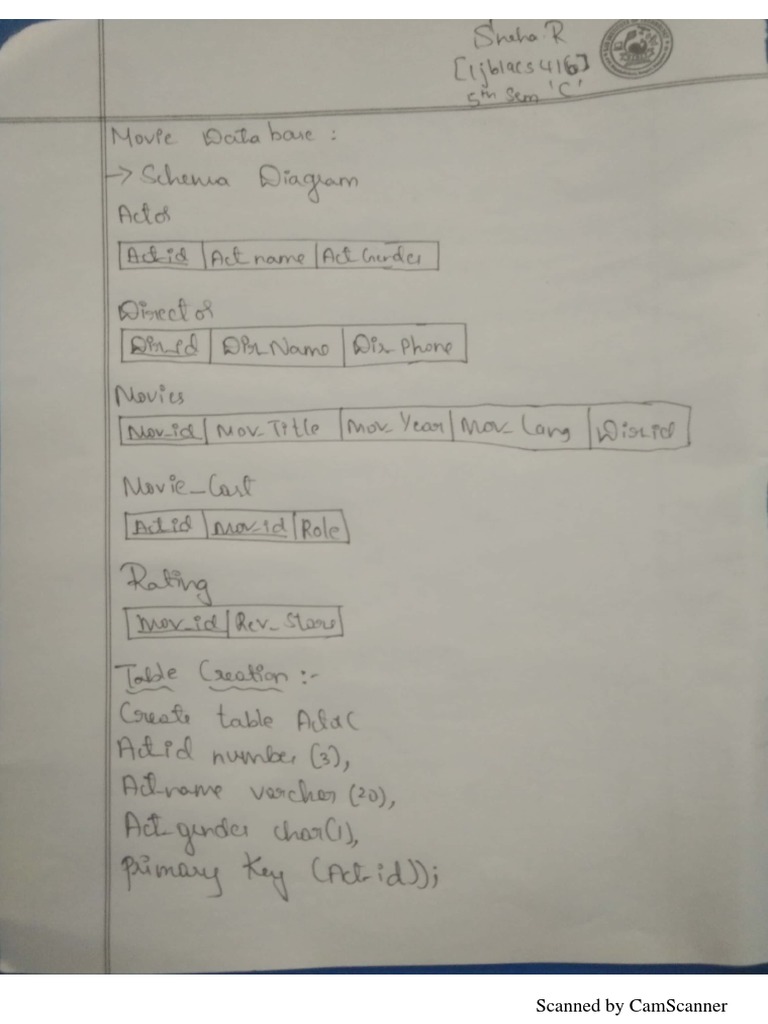 Sneha R
[1jb19cs416]
5th Sem 'C'
Movie Database :
→ Schema Diagram
Actor
Act_id Act_name Act_Gender
Director
Dir_id Dir_Name Dir_Phone
Movies
Mov_id Mov_Title Mov_Year Mov_Lang Dir_id
Movie_Cast
Act_id Mov_id Role
Rating
Mov_id Rev_Stars
Table Creation :-
Create table Actor(
Act_id number (3),
Act_name varchar (20),
Act_gender char(1),
primary Key (Act_id));
Scanned by CamScanner